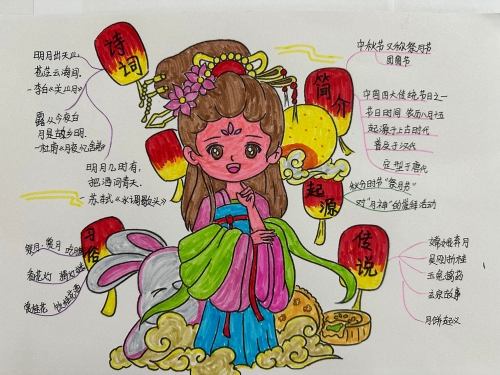 诗词
明月出天山,
苍茫云海间。
-李白《关山月》
露从今夜白
月是故乡明
明月几时有,
把酒问青天。
苏轼《水调歌头》
习俗
赏月 祭月
赏桂花
简介
中秋节又称祭月节
团圆节
中国四大传统节日之一
节日时间 农历八月十五
起源于上古时代
普及于汉代
定型于唐代
起源
秋分时节"祭月节"
对"月神"的崇拜活动
传说
嫦娥奔月
吴刚折桂
玉兔捣药
月饼起义